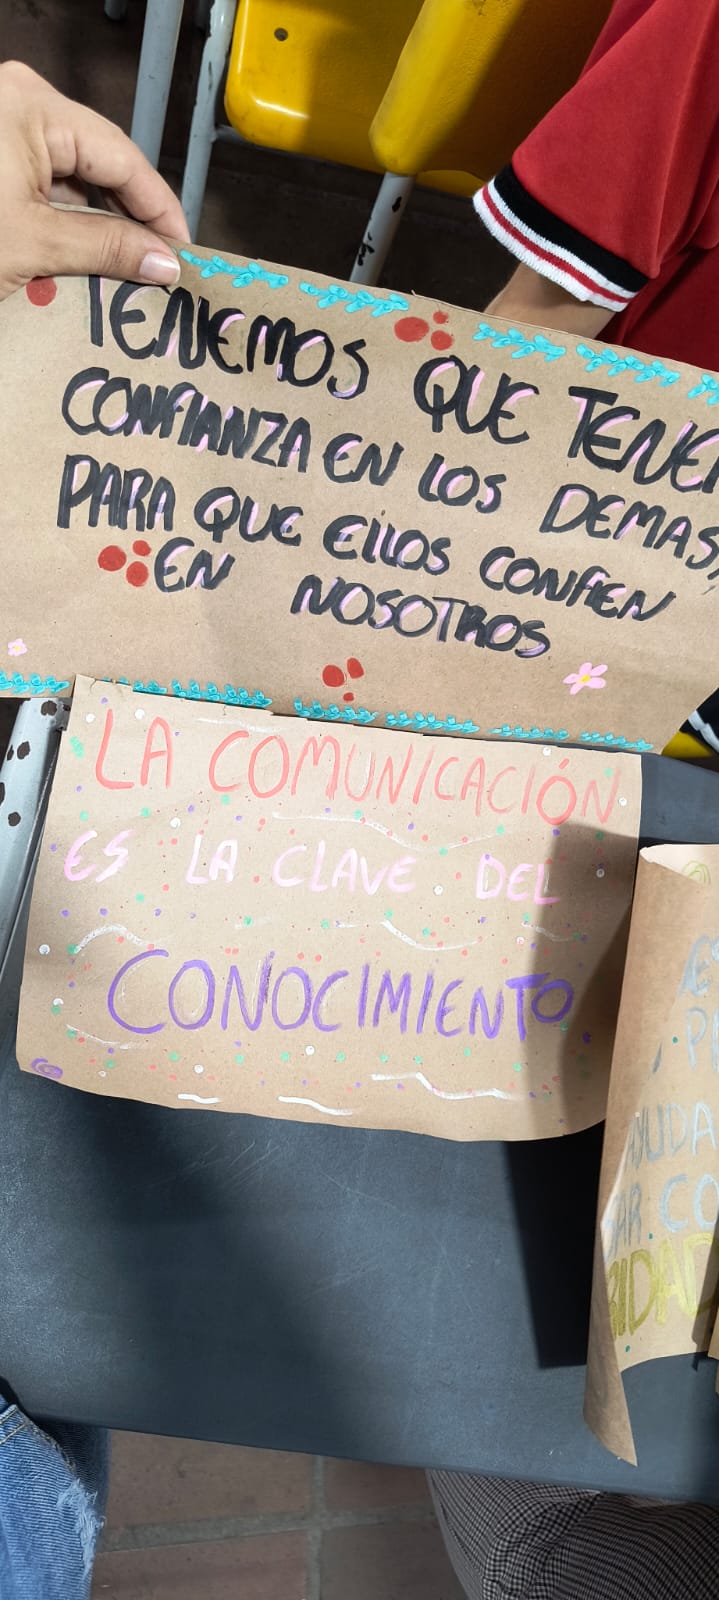 TENEMOS QUE TENER
CONFIANZA EN LOS DEMAS,
PARA QUE EllOS CONFIEN
EN NOSOTROS
LA COMUNICACIÓN
ES LA CLAVE DEL
CONOCIMIENTO